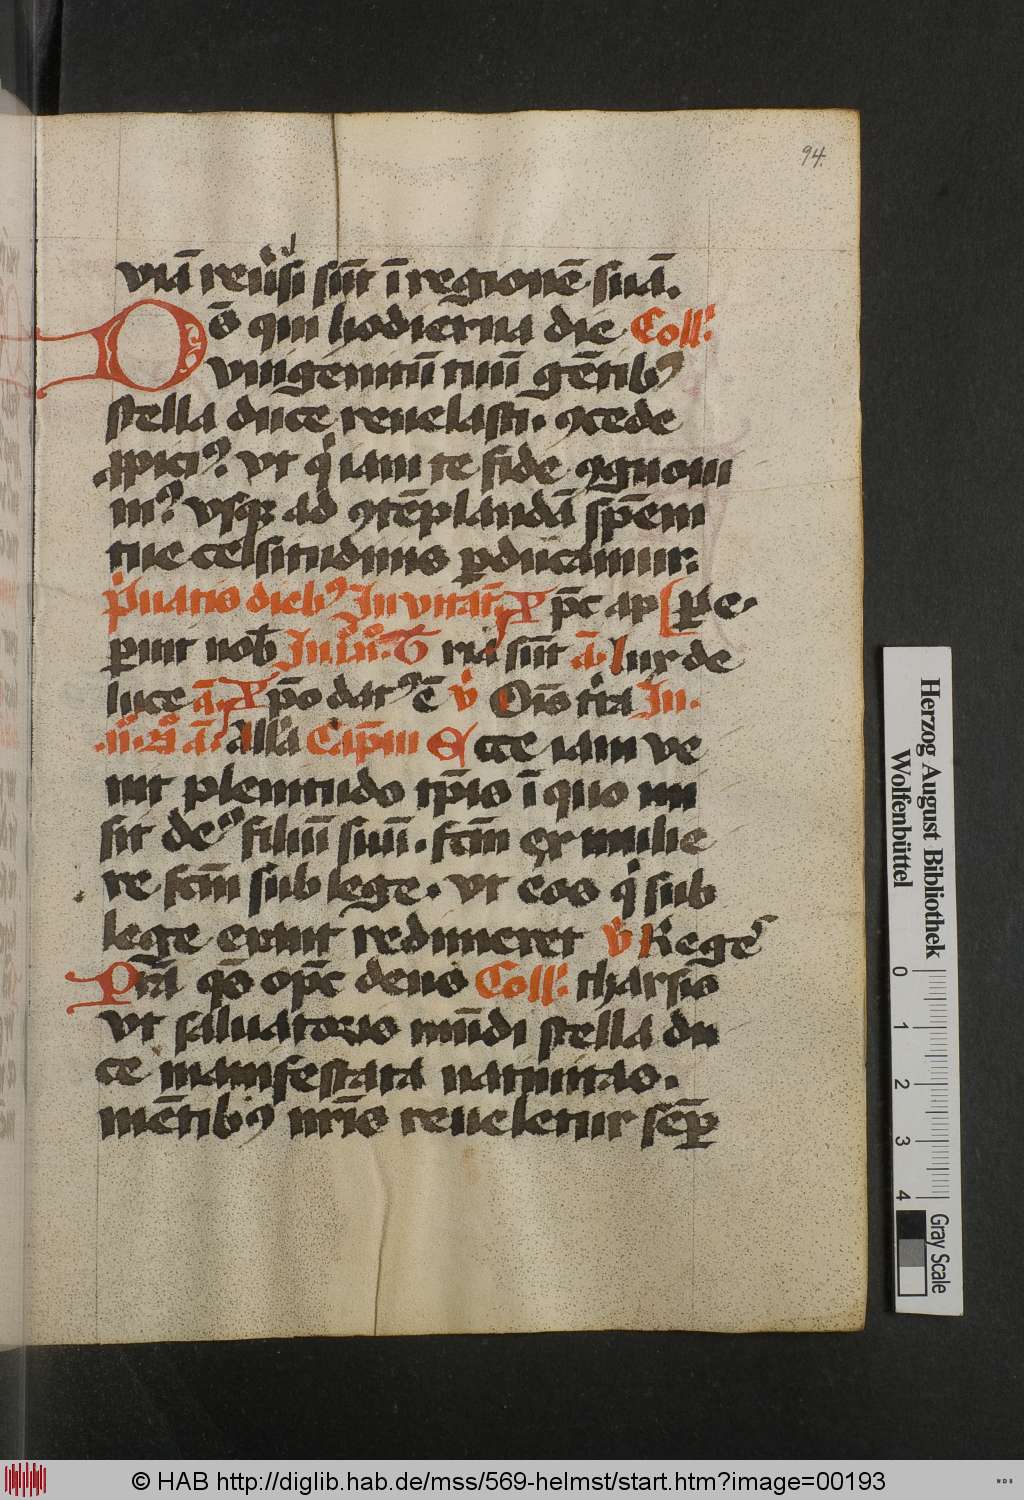 94.
viā reuͥsi sūt ī regionē suā.
Ds̄ qui hodierna die Coll'
vnigenitū tuū gētibꝰ
stella duce reuelasti. ꝯcede
ꝓpiciꝰ vt qͥ iam te fide ꝯgnoui
mꝰ vsqꝫ ad ꝯtēplandā spēm
tue celsitudinis ꝑducamur.
Pͥuatis diebꝰ Inuitat' Xp̄c ap
ꝑuit nob̄ In Tria sūt a lux de
luce a Xp̄o datꝰ ē v Oīs tr̄a In
a all'a Capm̄ Ecce iam ve
nit plenitudo tp̄is ī quo mi
sit deꝰ filiū suū. fc̄m ex mulie
re fc̄m sub lege. vt eos qͥ sub
lege erant redimeret v Regē
Pr̄a qs̄ op̄c deus Coll' tharsis
vt saluatoris mūdi stella du
ce manifestata natiuitas.
mētibꝰ nr̄is reueletur semꝑ
Herzog August Bibliothek
Wolfenbüttel
0 1 2 3 4
Gray Scale
© HAB http://diglib.hab.de/mss/569-helmst/start.htm?image=00193